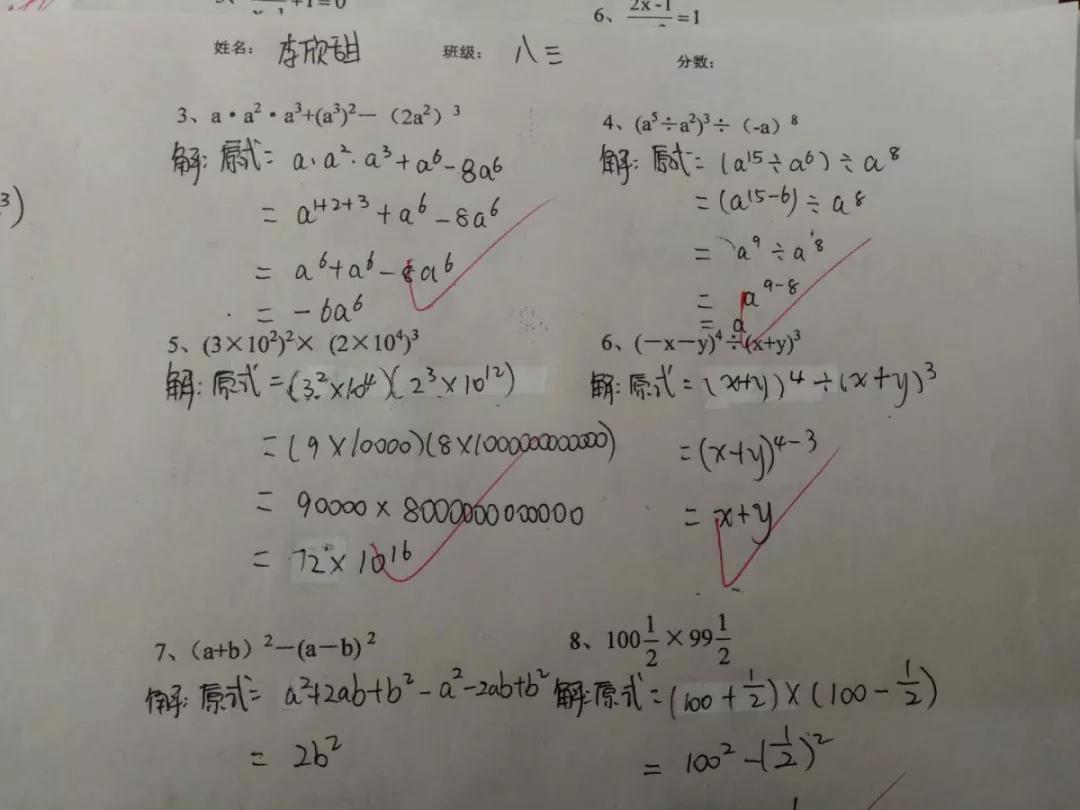 +1=0
6、2x-1/ =1
姓名: 李欣甜 班级: 八三 分数:
3、a·a²·a³+(a³)²—(2a²)³
解:原式=a·a²·a³+a⁶-8a⁶
=a¹⁺²⁺³+a⁶-8a⁶
=a⁶+a⁶-8a⁶
=-6a⁶
4、(a⁵÷a²)³÷(-a)⁸
解:原式=(a¹⁵÷a⁶)÷a⁸
=(a¹⁵⁻⁶)÷a⁸
=a⁹÷a⁸
=a⁹⁻⁸
=a
5、(3×10²)²×(2×10⁴)³
解:原式=(3²×10⁴)(2³×10¹²)
=(9×10000)(8×1000000000000)
=90000×8000000000000
=72×10¹⁶
6、(—x—y)⁴÷(x+y)³
解:原式=(x+y)⁴÷(x+y)³
=(x+y)⁴⁻³
=x+y
7、(a+b)²—(a—b)²
解:原式=a²+2ab+b²-a²-2ab+b²
=2b²
8、100 1/2×99 1/2
解:原式=(100+1/2)×(100-1/2)
=100²-(1/2)²